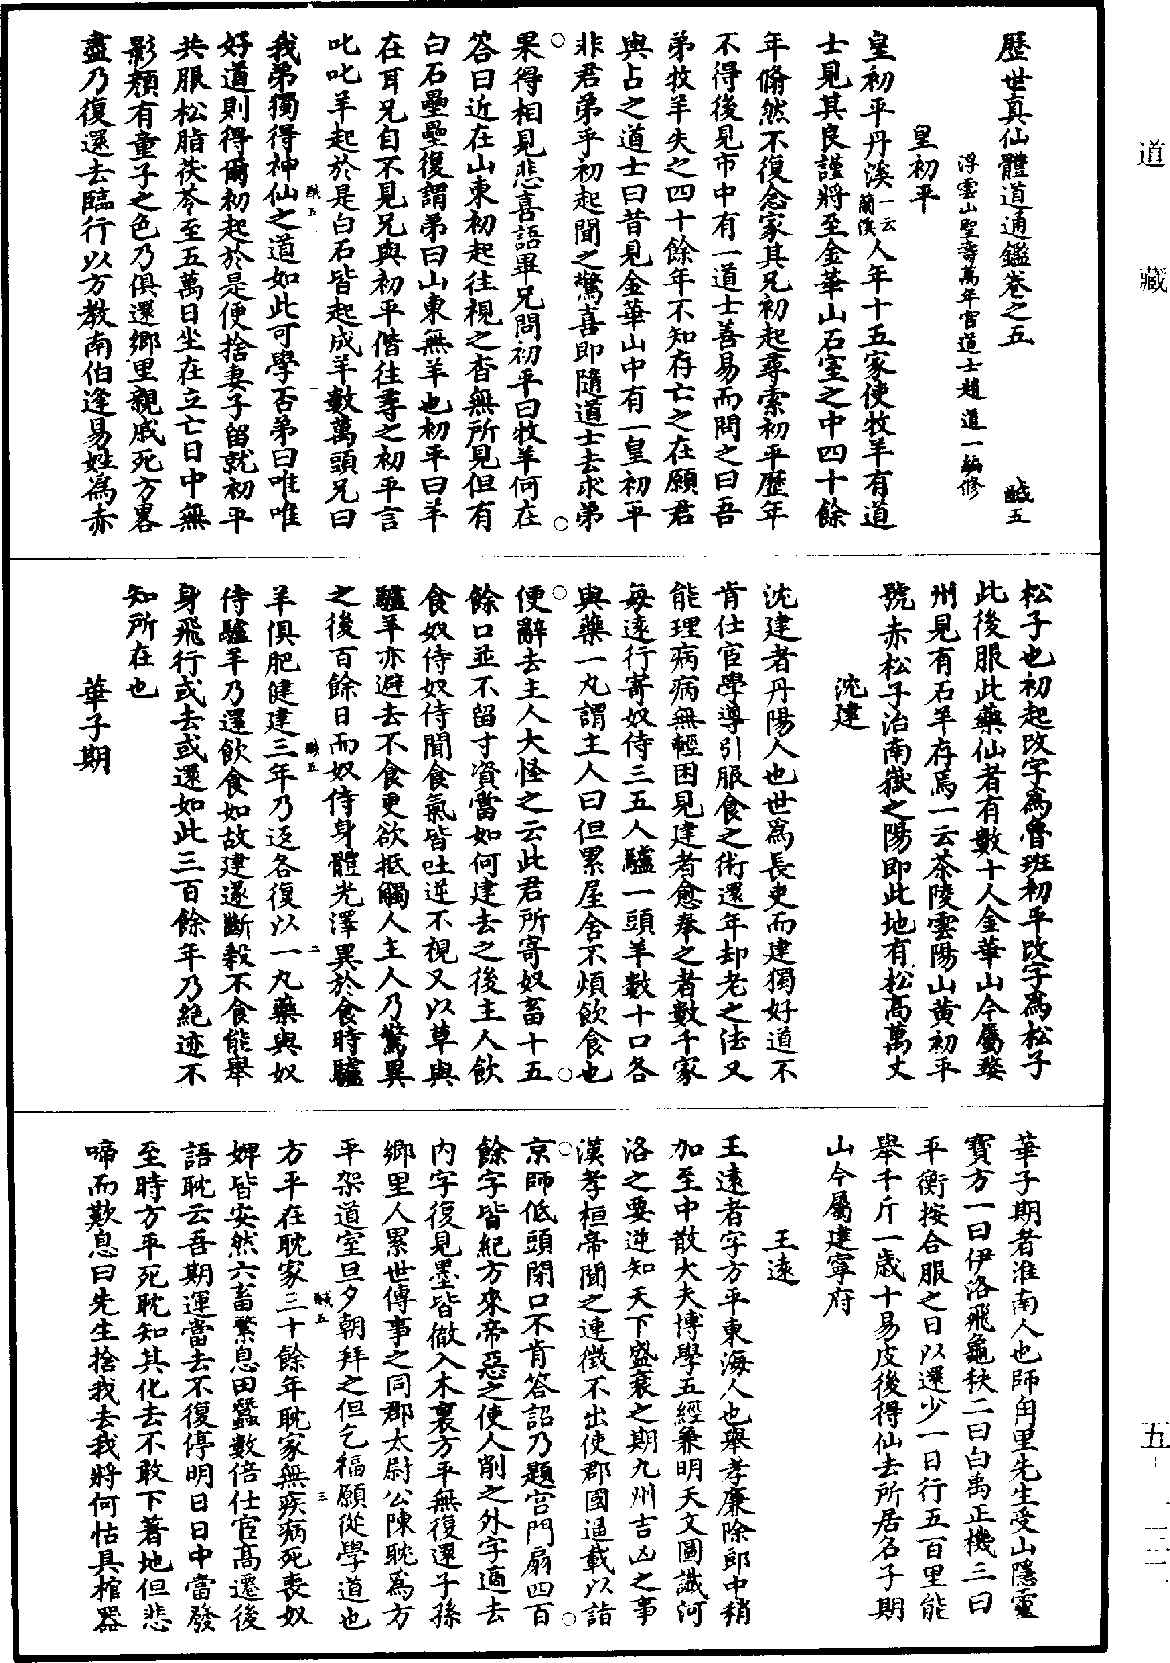 道藏
五-一三一
歷世真仙體道通鑑卷之五 醎五
浮雲山聖壽萬年宮道士趙道一編修
皇初平
皇初平丹溪一云蘭溪人年十五家使牧羊有道
士見其良謹將至金華山石室之中四十餘
年翛然不復念家其兄初起尋索初平歷年
不得後見市中有一道士善易而問之曰吾
弟牧羊失之四十餘年不知存亡之在願君
與占之道士曰昔見金華山中有一皇初平
非君弟乎初起聞之驚喜即隨道士去求弟
果得相見悲喜語畢兄問初平曰牧羊何在
答曰近在山東初起往視之杳無所見但有
白石壘壘復謂弟曰山東無羊也初平曰羊
在耳兄自不見兄與初平偕往尋之初平言
叱叱羊起於是白石皆起成羊數萬頭兄曰
我弟獨得神仙之道如此可學否弟曰唯唯
好道則得爾初起於是便捨妻子留就初平
共服松脂茯苓至五萬日坐在立亡日中無
影顏有童子之色乃俱還鄉里親戚死方畧
盡乃復還去臨行以方教南伯逢易姓為赤
松子也初起改字為魯班初平改字為松子
此後服此藥仙者有數十人金華山今屬婺
州見有石羊存焉一云茶陵雲陽山黄初平
號赤松子治南嶽之陽即此地有松高萬丈
沈建
沈建者丹陽人也世為長史而建獨好道不
肯仕宦學導引服食之術還年却老之法又
能理病病無輕困見建者愈奉之者數千家
每遠行寄奴侍三五人驢一頭羊數十口各
與藥一丸謂主人曰但累屋舍不煩飲食也
便辭去主人大怪之云此君所寄奴畜十五
餘口並不留寸資當如何建去之後主人飲
食奴侍奴侍聞食氣皆吐逆不視又以草與
驢羊亦避去不食更欲抵觸人主人乃驚異
之後百餘日而奴侍身體光澤異於食時驢
羊俱肥健建三年乃返各復以一丸藥與奴
侍驢羊乃還飲食如故建遂斷穀不食能舉
身飛行或去或還如此三百餘年乃絕迹不
知所在也
華子期
華子期者淮南人也師甪里先生受山隱靈
寶方一曰伊洛飛龜秩二曰白禹正機三曰
平衡按合服之日以還少一日行五百里能
舉千斤一歲十易皮後得仙去所居名子期
山今屬建寧府
王遠
王遠者字方平東海人也舉孝廉除郎中稍
加至中散大夫博學五經兼明天文圖讖河
洛之要逆知天下盛衰之期九州吉凶之事
漢孝桓帝聞之連徵不出使郡國逼載以詣
京師低頭閉口不肯答詔乃題宮門扇四百
餘字皆紀方來帝惡之使人削之外字適去
内字復見墨皆徹入木裏方平無復還子孫
鄉里人累世傳事之同郡太尉公陳耽為方
平架道室旦夕朝拜之但乞福願從學道也
方平在耽家三十餘年耽家無疾病死喪奴
婢皆安然六畜繁息田蠶數倍仕宦高遷後
語耽云吾期運當去不復停明日日中當發
至時方平死耽知其化去不敢下著地但悲
啼而歎息曰先生捨我去我將何怙具棺器